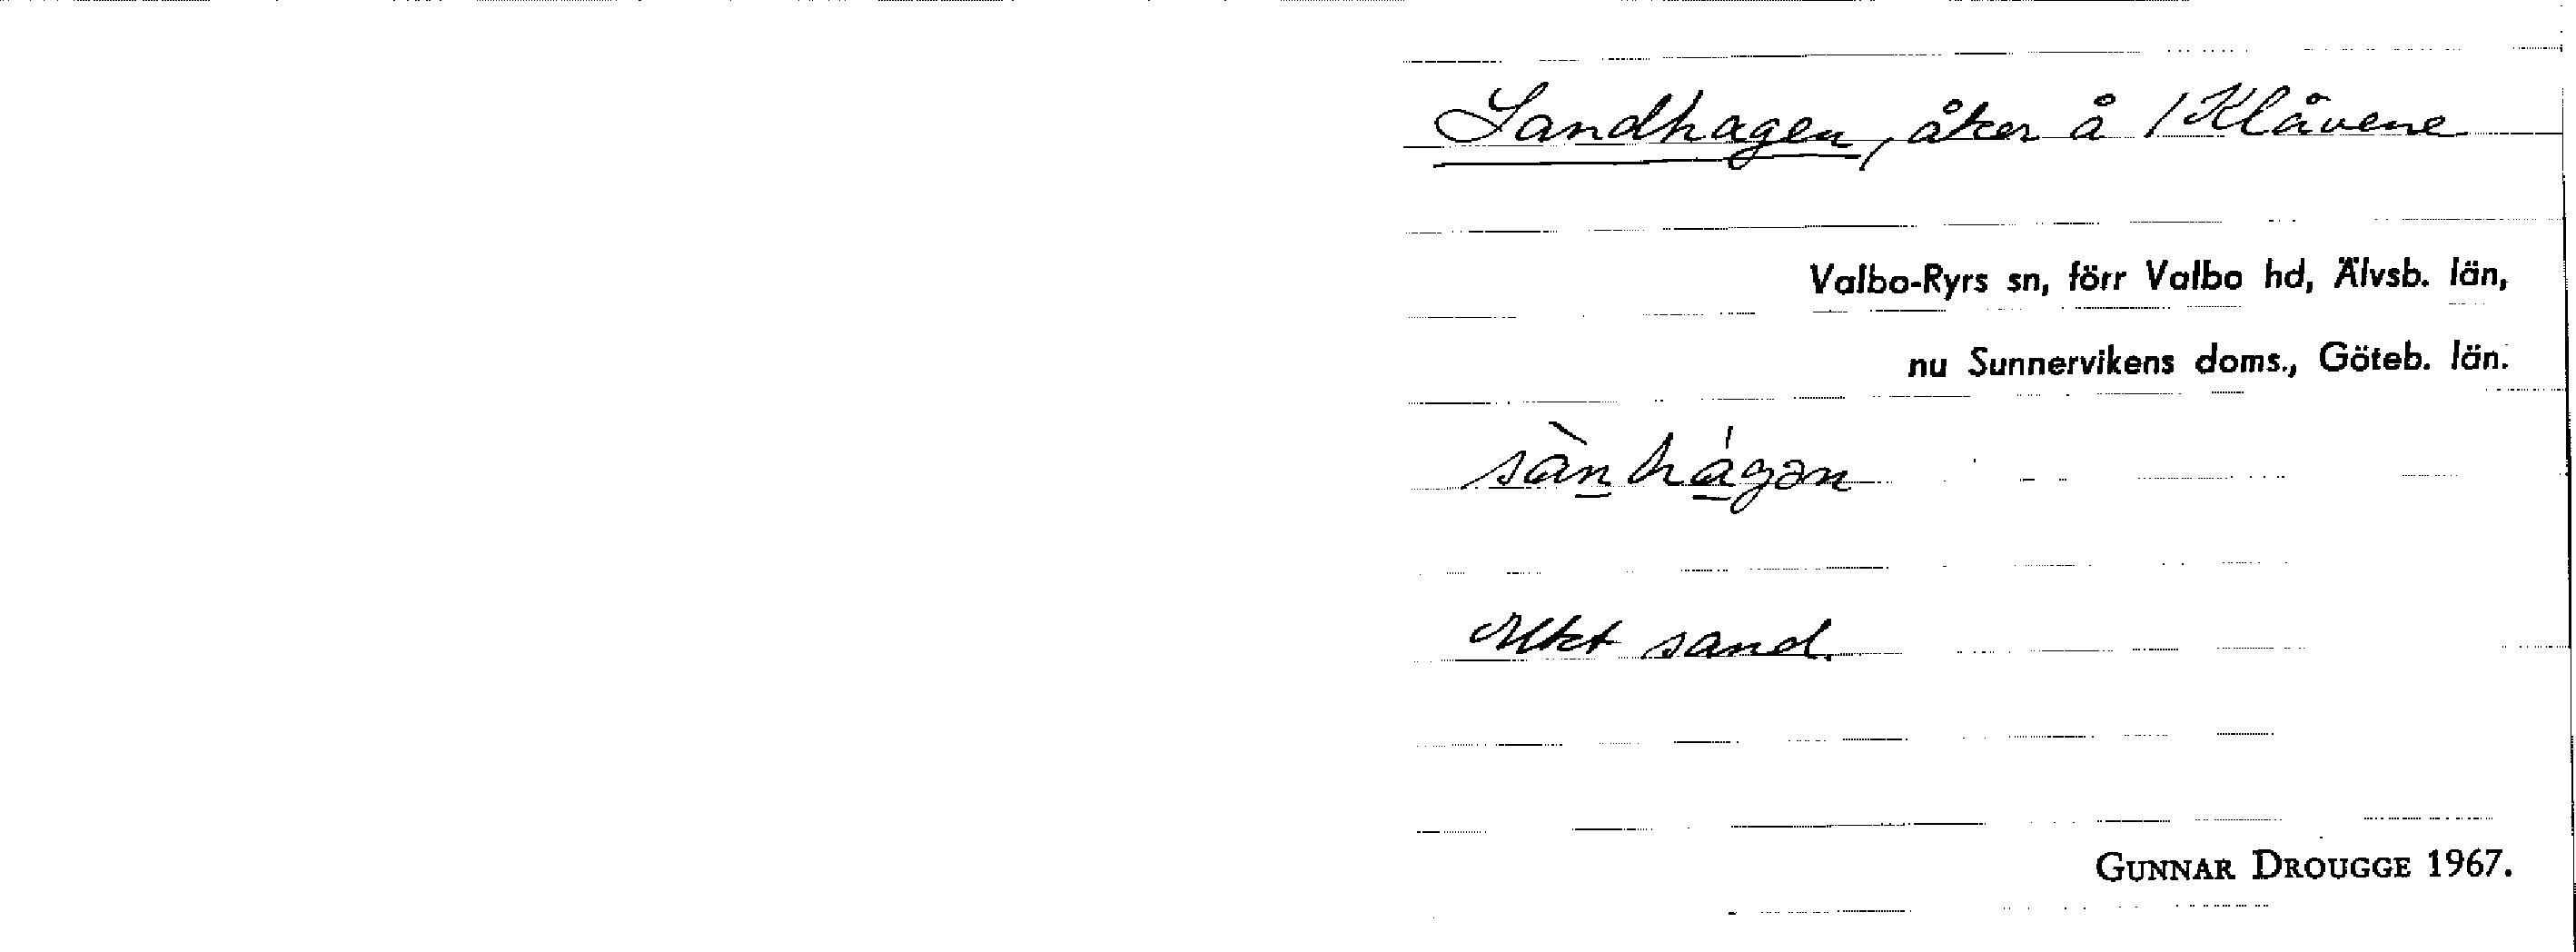 Sandhagen, åker å /Klåvene
Valbo-Ryrs sn, förr Valbo hd, Älvsb. län,
nu Sunnervikens doms., Göteb. län.
sàn̠há̠gən
Mkt sand.
GUNNAR DROUGGE 1967.